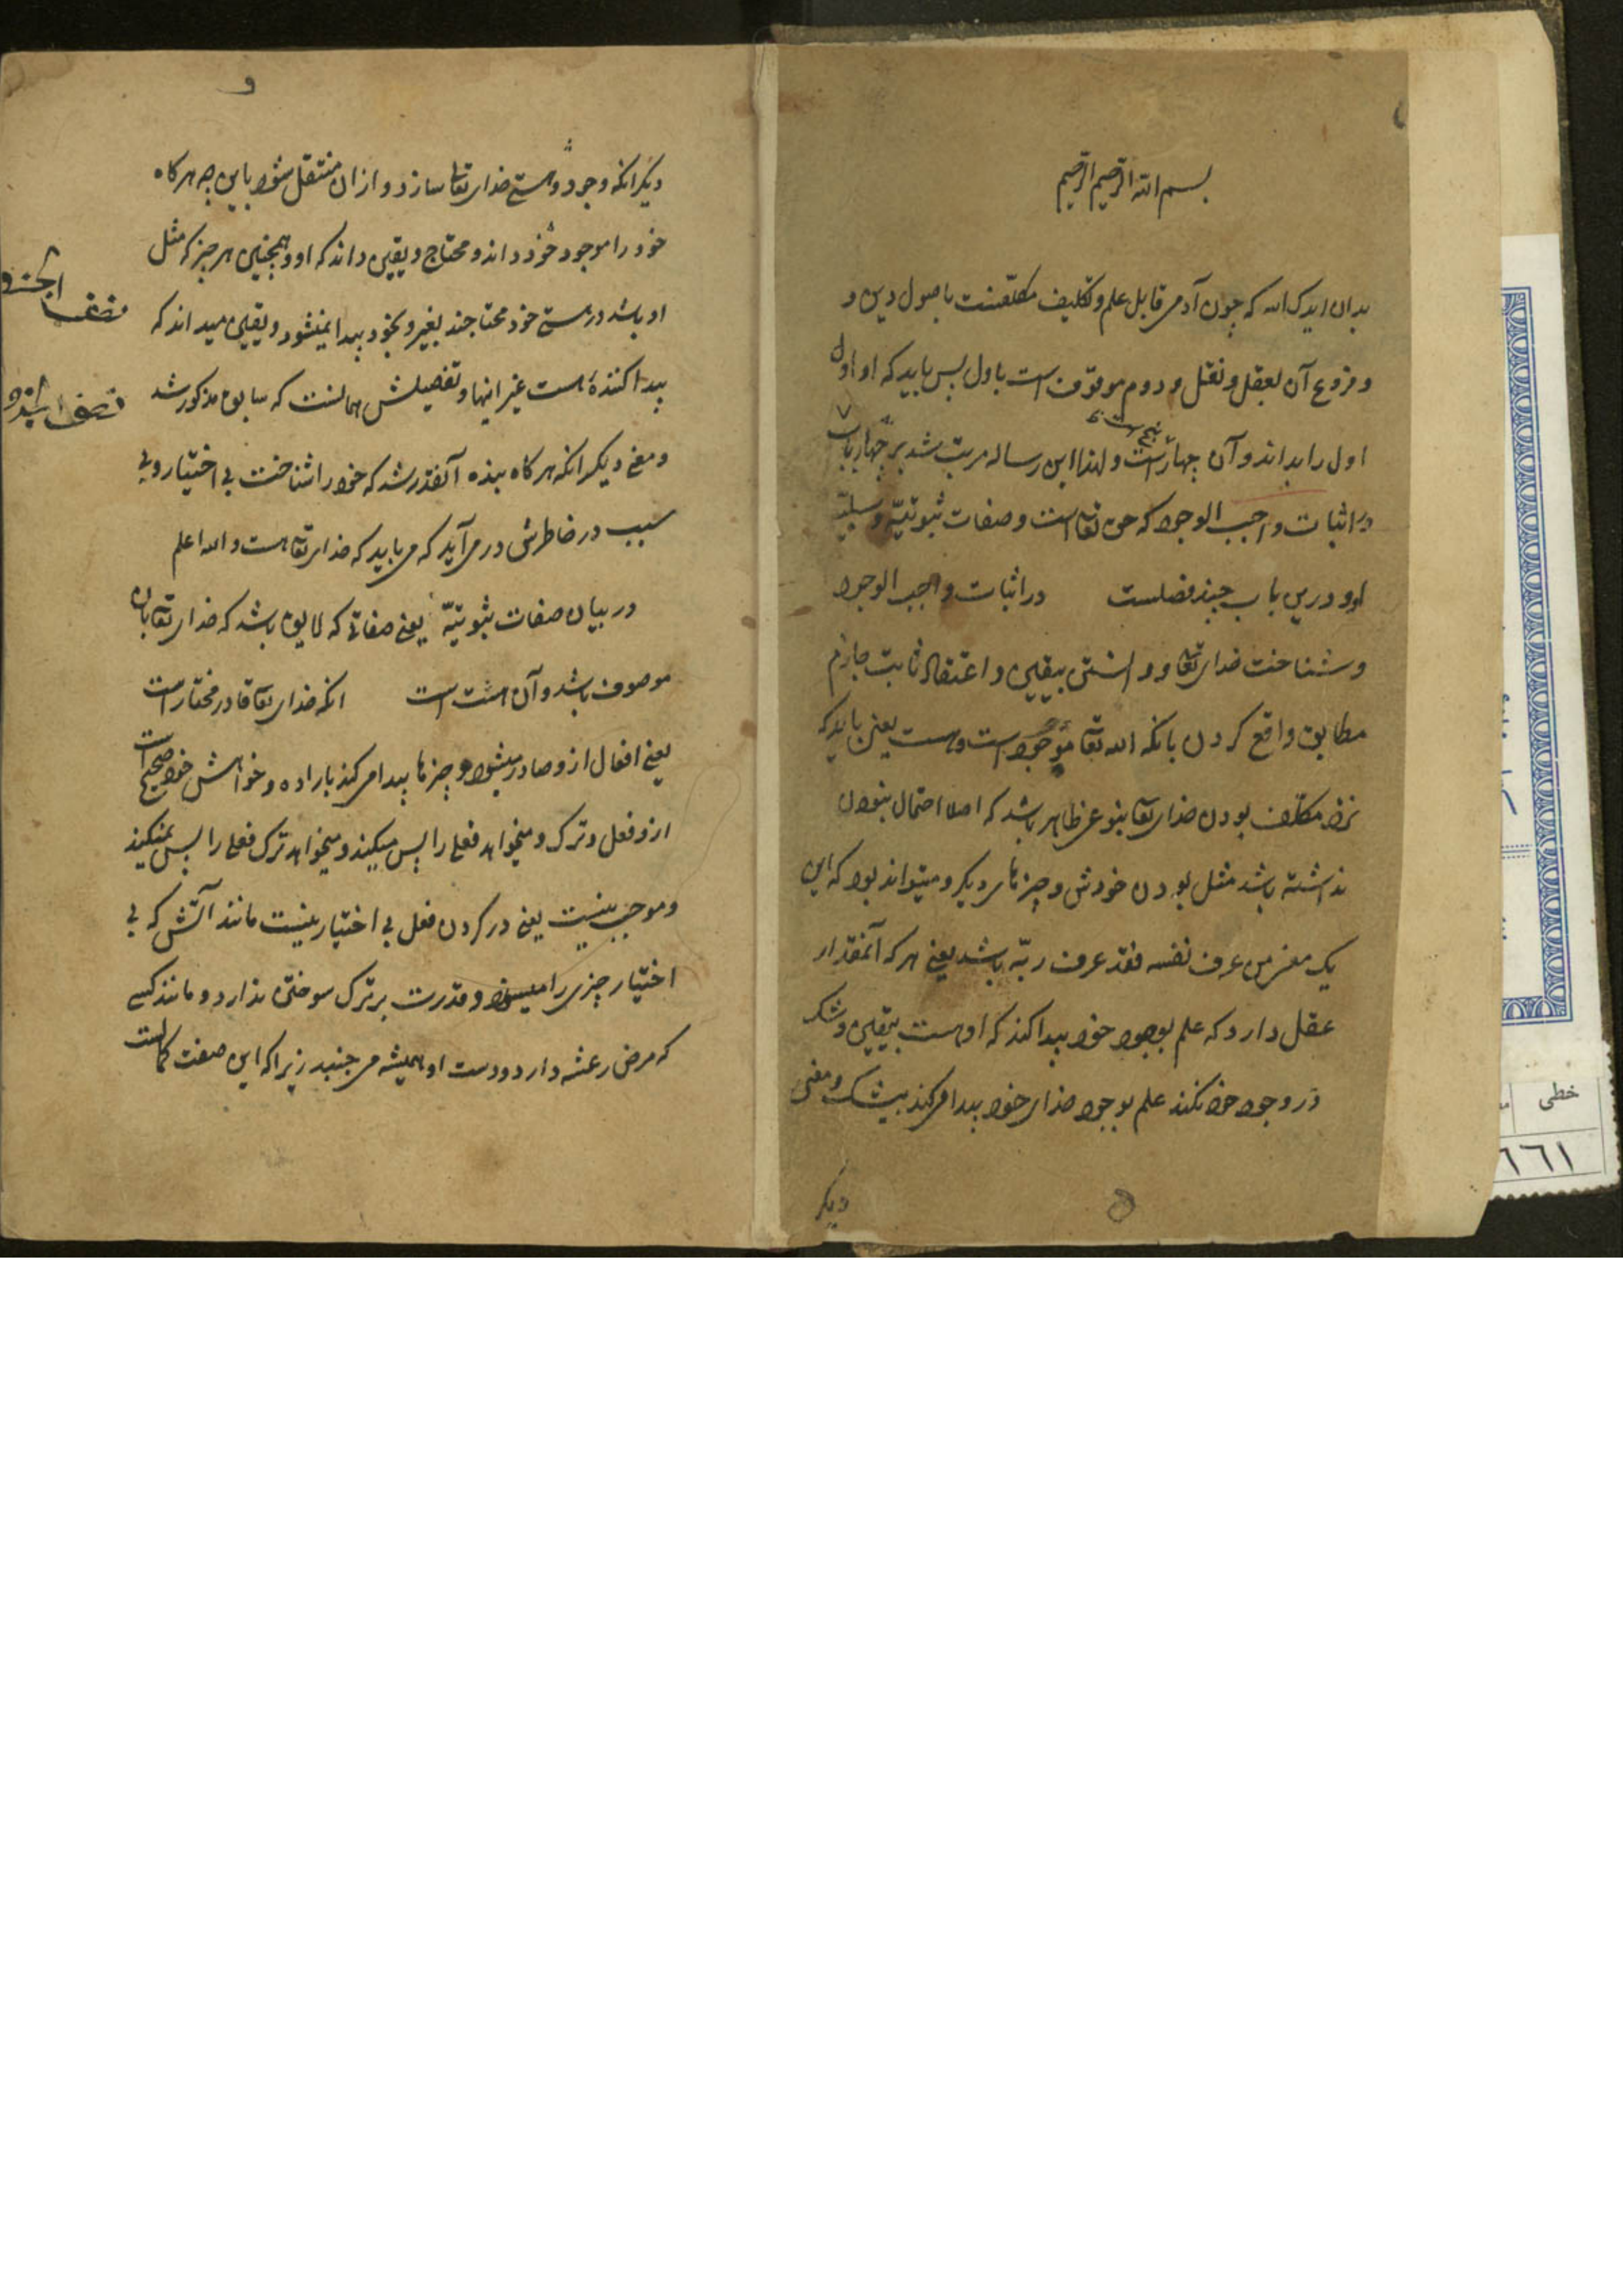 بسم الله الرحمن الرحیم
بدان ایدک الله که چون آدمی قابل علم و تکلیف مکلفست باصول دین و
و فروع آن بعقل و نقل و دوم موقوفست باول پس باید که او اول
اول را بداند و آن چهارست و لهذا این رساله مرتب شد بر چهار باب
در اثبات واجب الوجود که حق تعالی است و صفات ثبوتیّه و سلبیّه
او و درین باب چند فصلست در اثبات واجب الوجود
و شناخت خدای تعالی و دانستن بیقین و اعتقاد ثابت جازم
مطابق واقع کردن بانکه الله تعالی موجود است و هست یعنی باید که
نزد مکلف بودن خدای تعالی بنوعی ظاهر باشد که اصلا احتمال نبودن
نداشته باشد مثل بودن خودش و چیزهای دیگر و میتواند بود که این
یک معنی من عرف نفسه فقد عرف ربّه باشد یعنی هر که آنمقدار
عقل دارد که علم بوجود خود پیدا کند که او هست بیقین و شک
در وجود خود نکند علم بوجود خدای خود پیدا می کند بیشک و معنی
دیگر
دیگر انکه وجود و هستی خدای تعالی سازد و از ان منتقل شود باین چه هرگاه
خود را موجود خود داند و محتاج و یقین داند که او و همچنین هر چیز که مثل
او باشد در هستی خود محتاجند بغیر و بخود پیدا نمیشود و یقین میداند که
پیدا کنندهٔ هست غیر اینها و تفصیلش همانست که سابق مذکور شد
و معنی دیگر انکه هرگاه بنده آنقدر شد که خود را شناخت بی اختیار و بی
سبب در خاطرش در می آید که می باید که خدای تعالی هست و الله اعلم
در بیان صفات ثبوتیّه یعنی صفاتی که لایق باشد که خدای تعالی بان
موصوف باشد و آن هشت است انکه خدای تعالی قادر مختار است
یعنی افعال ازو صادر میشود و چیزها پیدا می کند باراده و خواهش خود صحیح است
ازو فعل و ترک و میخواهد فعلی را پس میکند و میخواهد ترک فعلی را پس نمیکند
و موجب نیست یعنی در کردن فعل بی اختیار نیست مانند آتش که بی
اختیار چیزی را میسوزد و قدرت بر ترک سوختن ندارد و مانند کسی
که مرض رعشه دارد و دست او همیشه می جنبد زیرا که این صفت کمالست
خطی
٦٦١